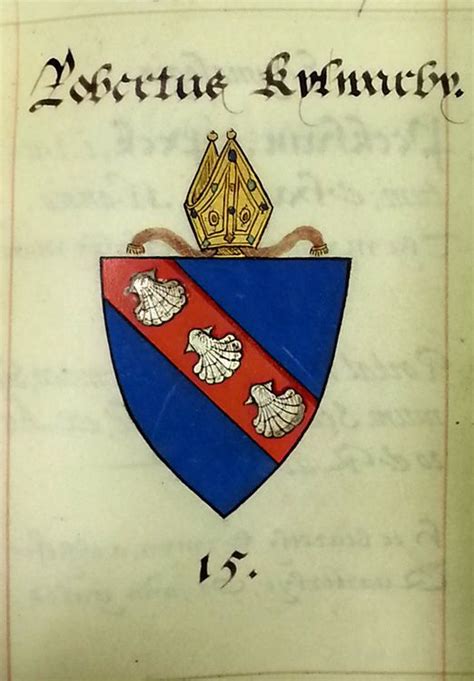 Robertus Kylwarby.
15.